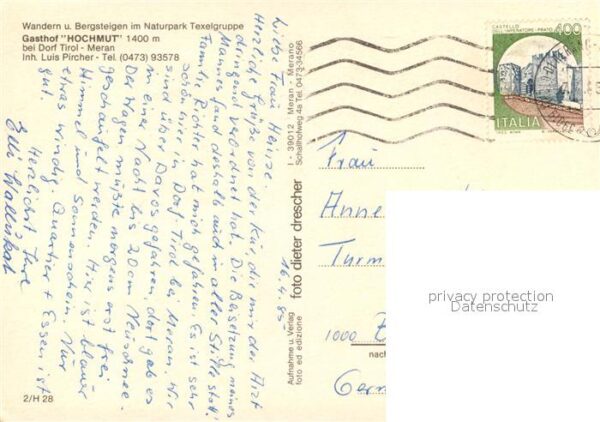 Wandern u. Bergsteigen im Naturpark Texelgruppe
Gasthof "HOCHMUT" 1400 m
bei Dorf Tirol - Meran
Inh. Luis Pircher - Tel. (0473) 93578
16.4.85
Liebe Frau Heinze.
Herzliche Grüße von der Kur, die mir der Arzt
dringend verordnet hat. Die Beisetzung meines
Mannes fand deshalb auch in aller Stille statt.
Familie Richter hat mich gefahren. Es ist sehr
schön hier in Dorf Tirol bei Meran. Wir
sind über Davos gefahren, dort gab es
in einer Nacht bis 20cm Neuschnee.
Der Wagen müßte morgens erst frei
geschaufelt werden. Hier ist blauer
Himmel und Sonnenschein. Nur
etwas windig. Quartier + Essen ist
gut.
Herzlichst Ihre
Elli
2/H 28
I - 39012 Meran - Merano
Schallhofweg 4a Tel. 0473-34566
foto dieter drescher
Aufnahme u. Verlag
foto ed edizione
CASTELLO
DELL'IMPERATORE - PRATO
400
ITALIA
Frau
Anne
Turm
1000
nach
Germ
privacy protection
Datenschutz